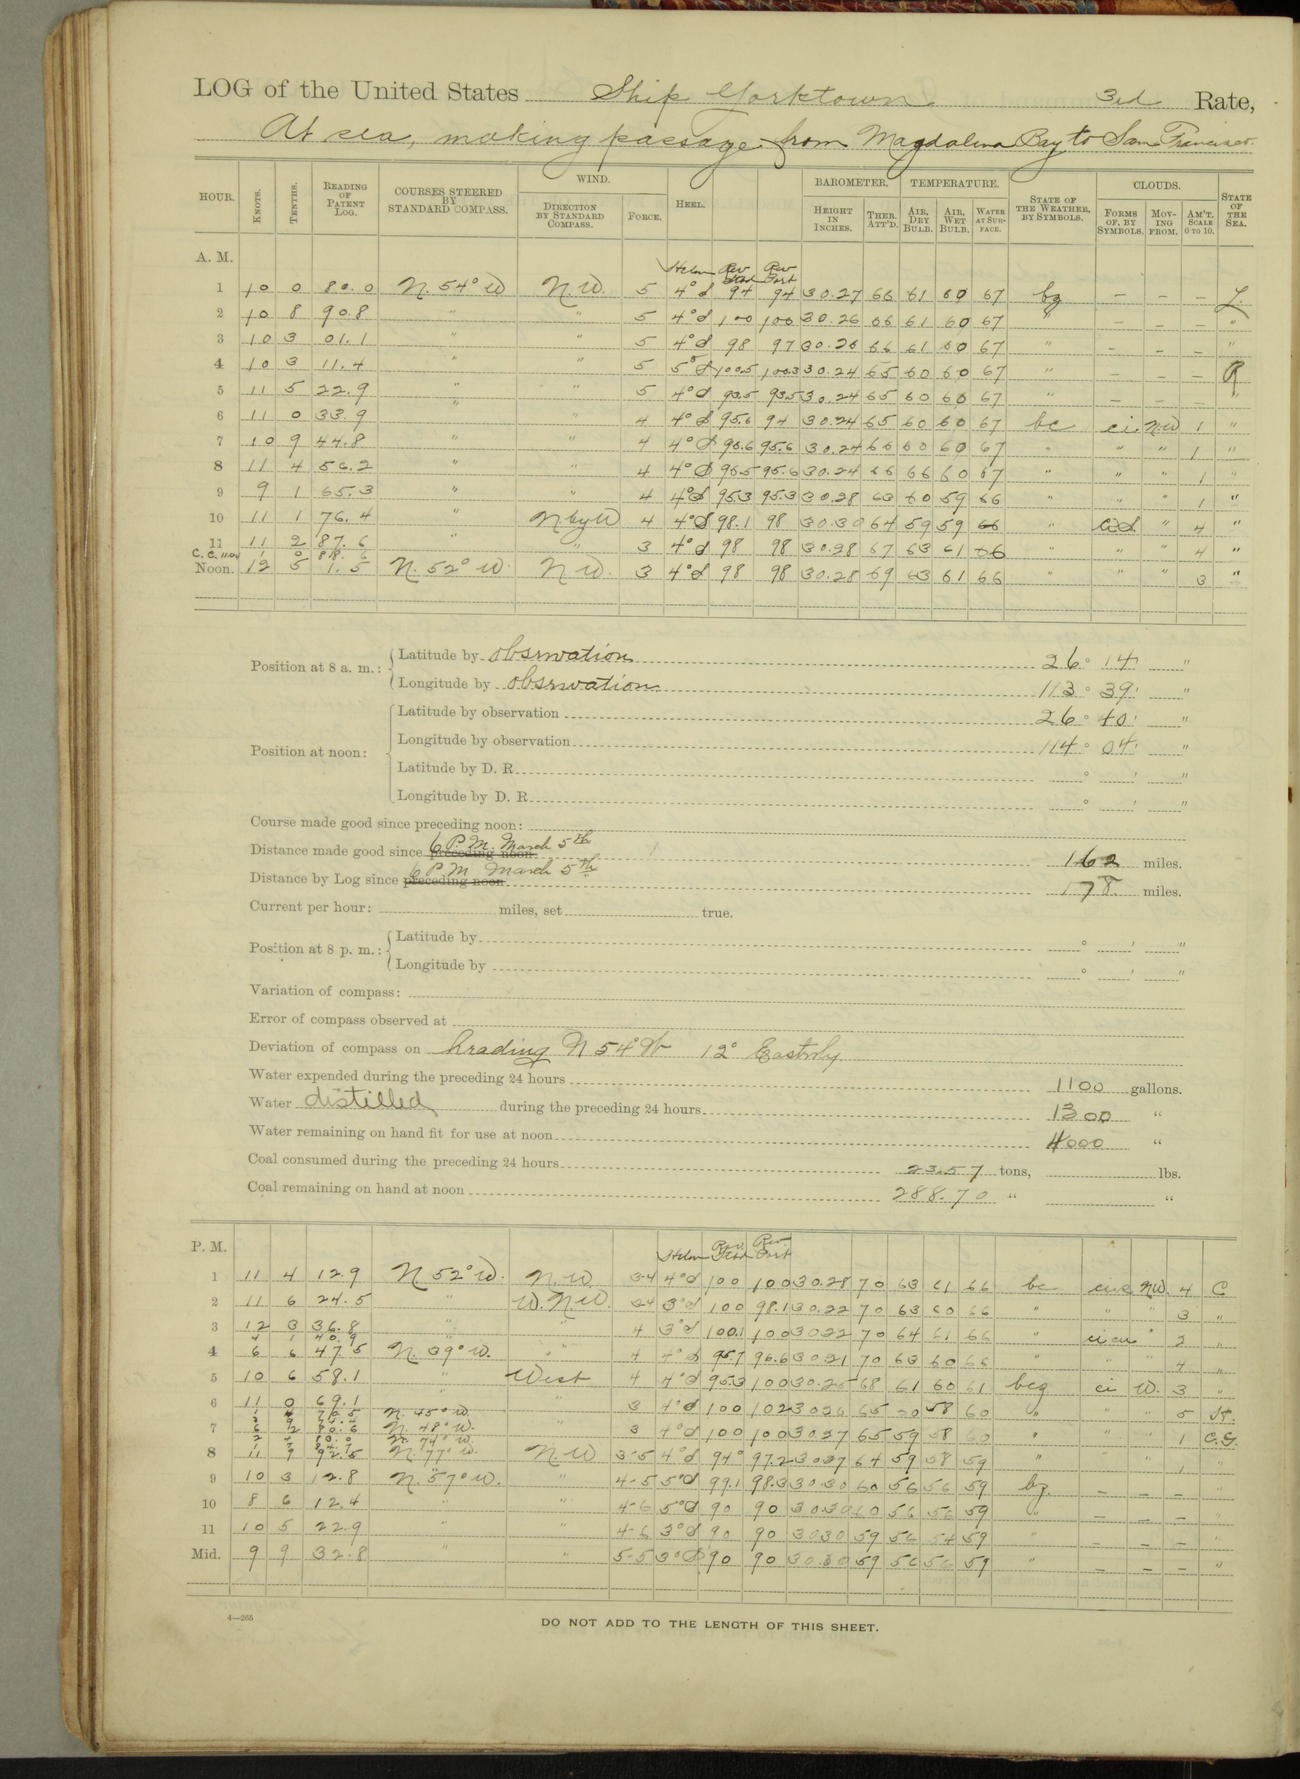 LOG of the United States Ship Yorktown 3rd Rate,
At sea, making passage from Magdalena Bay to San Francisco.
HOUR. KNOTS. TENTHS. READING OF PATENT LOG. COURSES STEERED BY STANDARD COMPASS. WIND. DIRECTION BY STANDARD COMPASS. FORCE. HEEL. BAROMETER. HEIGHT IN INCHES. THER. ATT'D. TEMPERATURE. AIR, DRY BULB. AIR, WET BULB. WATER AT SURFACE. STATE OF THE WEATHER, BY SYMBOLS. CLOUDS. FORMS OF, BY SYMBOLS. MOVING FROM. AM'T. SCALE 0 TO 10. STATE OF THE SEA.
A. M. Helm Rev Stbd Rev Port
1 10 0 80.0 N. 54° W N.W. 5 4° d 94 94 30.27 66 61 60 67 bz – – – L.
2 10 8 90.8 " " 5 4° d 100 100 30.26 66 61 60 67 " – – – "
3 10 3 01.1 " " 5 4° d 98 97 30.26 66 61 60 67 " – – – "
4 10 3 11.4 " " 5 5° d 100.5 100.3 30.24 65 60 60 67 " – – – R
5 11 5 22.9 " " 5 4° d 93.5 93.5 30.24 65 60 60 67 " – – – "
6 11 0 33.9 " " 4 4° d 95.6 94 30.24 65 60 60 67 bc ci NW 1 "
7 10 9 44.8 " " 4 4° d 95.6 95.6 30.24 66 60 60 67 " " " 1 "
8 11 4 56.2 " " 4 4° d 95.5 95.6 30.24 66 66 60 67 " " " 1 "
9 9 1 65.3 " " 4 4° d 95.3 95.3 30.28 63 60 59 66 " " " 1 "
10 11 1 76.4 " N by W 4 4° d 98.1 98 30.30 64 59 59 66 " " 4 "
11 11 2 87.6 " " 3 4° d 98 98 30.28 67 63 61 66 " " " 4 "
C.C. 1 0 88.6
Noon. 12 5 1.5 N. 52° W. N.W. 3 4° d 98 98 30.28 69 63 61 66 " " " 3 "
Position at 8 a. m.: Latitude by observation 26° 14' "
Longitude by observation 113° 39' "
Position at noon: Latitude by observation 26° 40' "
Longitude by observation 114° 04' "
Latitude by D. R. ° ' "
Longitude by D. R. ° ' "
Course made good since preceding noon:
6 P.M. March 5th
Distance made good since preceding noon 162 miles.
6 P.M. March 5th
Distance by Log since preceding noon 178 miles.
Current per hour: miles, set true.
Position at 8 p. m.: Latitude by ° ' "
Longitude by ° ' "
Variation of compass:
Error of compass observed at
Deviation of compass on heading N 54° W 12° Easterly
Water expended during the preceding 24 hours 1100 gallons.
Water distilled during the preceding 24 hours 1300 "
Water remaining on hand fit for use at noon 4000 "
Coal consumed during the preceding 24 hours 23.57 tons, lbs.
Coal remaining on hand at noon 288.70 " "
P. M. Helm Rev. Stbd Rev. Port
1 11 4 12.9 N 52° W. N.W. 3-4 4° d 100 100 30.28 70 63 61 66 bc NW. 4 C
2 11 6 24.5 " W.N.W. 3° d 100 98.1 30.22 70 63 60 66 " " " 3 "
3 12 3 36.8 " " 4 3° d 100.1 100 30.22 70 64 61 66 " ci cu " 2 "
4 1 40.9
4 6 6 47.5 N. 39° W. " 4 4° d 95.7 96.6 30.21 70 63 60 66 " " " 4 "
5 10 6 58.1 " West 4 4° d 95.3 100 30.25 68 61 60 61 bcg ci W. 3 "
6 11 0 69.1 " " 3 4° d 100 102 30.26 65 58 60 " " " 5
N. 45° W.
7 6 2 80.6 N. 48° W. " 3 4° d 100 100 30.27 65 59 58 60 " " " 1 C.S.
N. 74° W.
8 11 9 92.5 N. 77° W. N.W 3-5 4° d 94° 97.2 30.27 64 59 58 59 " " " 1 "
9 10 3 12.8 N. 57° W. " 4-5 5° d 99.1 98.3 30.30 60 56 56 59 bz. – – – "
10 8 6 12.4 " " 4-6 5° d 90 90 30.30 60 56 56 59 " – – – "
11 10 5 22.9 " " 4-6 3° d 90 90 30.30 59 56 54 59 " – – – "
Mid. 9 9 32.8 " " 5-5 3° d 90 90 30.30 59 56 56 59 " – – – "
4—265
DO NOT ADD TO THE LENGTH OF THIS SHEET.